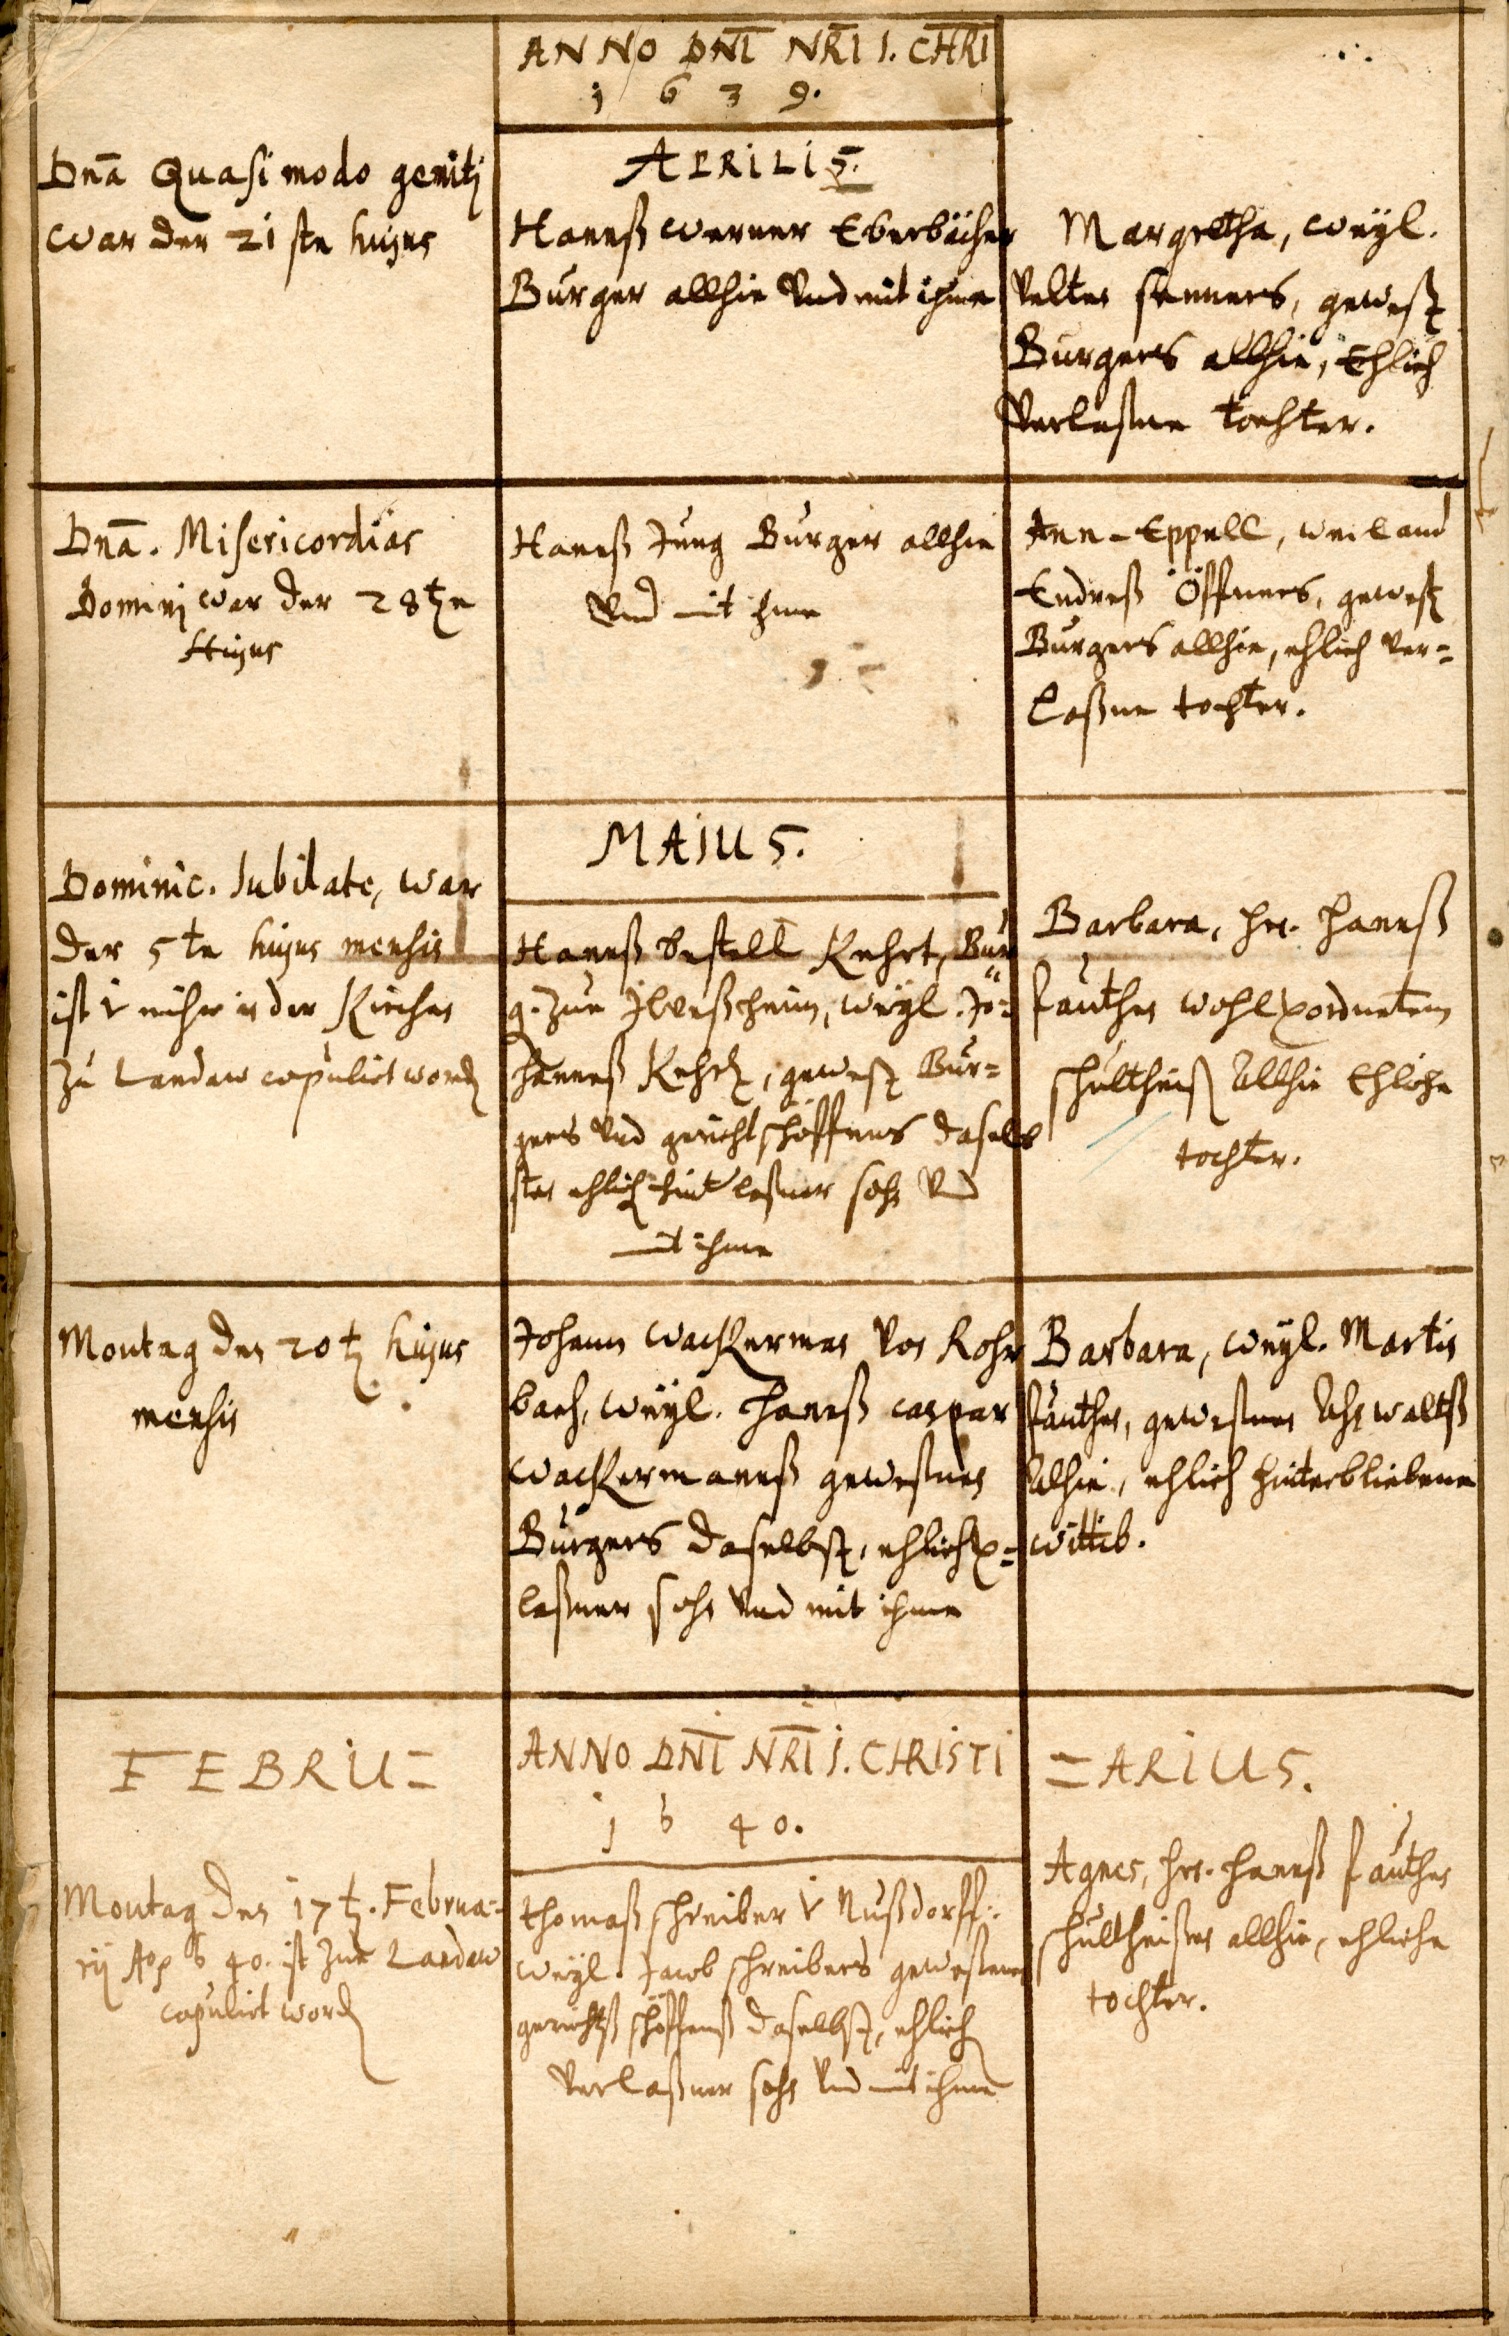 ANNO DNI NRI I. CHRI
1639.
APRILIS.
Dnā Quasimodo genitj
war der 21 ste hujus
Hanß Werner Eberbächer
Burger allhie Vnd mit ihme
Margretha, weyl.
Velten Henners, gewesß
Burgers allhie, Ehlich
Verlaßne tochter.
Dnā. Misericordias
Dominj war der 28tẽ
Hujus
Hanß Jung Burger allhie
Vnd mit ihme
Ann-Eppell, weiland
Endreß Öffners, gewesß
Burgers allhie, ehlich ver=
laßne tochter.
MAIUS.
Dominic. Iubilate, war
der 5te hujus mensis
ist in der Kirchen
zu Landaw copulirt word
Hanß Kehrt, Bur
g. zue Ilbesheim, weyl. Jo=
hanneß gewesß Bur=
gers Vnd gerichtschöffens daselb
sten ehlich hintlaßner sohn Vnd
mit ihme
Barbara, hrn. Hanß
Fauthen wohlverordnetem
schultheiß Allhie Ehliche
tochter.
Montag den 20t hujus
mensis
Johann Wackerman Von Rohr
bach, weyl. Hanß Caspar
Wackermanß geweßnes
Burgers daselbst, ehlich v=
laßner sohn Vnd mit ihme
Barbara, weyl. Martin
Fauthen, geweßnen
Alhie, ehlich hinterbliebene
wittib.
FEBRU=
ANNO DNI NRI J. CHRISTI
1640.
=ARIUS.
Montag den 17t. Februa=
rij Ao 40. ist zue Landaw
copulirt word
Thomaß schreiber V Nußdorff
weyl. Jacob schreibers geweßenen
gerichtß schöffenß daselbst, ehlich
Verlaßner sohn Vnd mit ihme
Agnes, hrn. Hanß Fauthen
schultheißen allhie, ehliche
tochter.